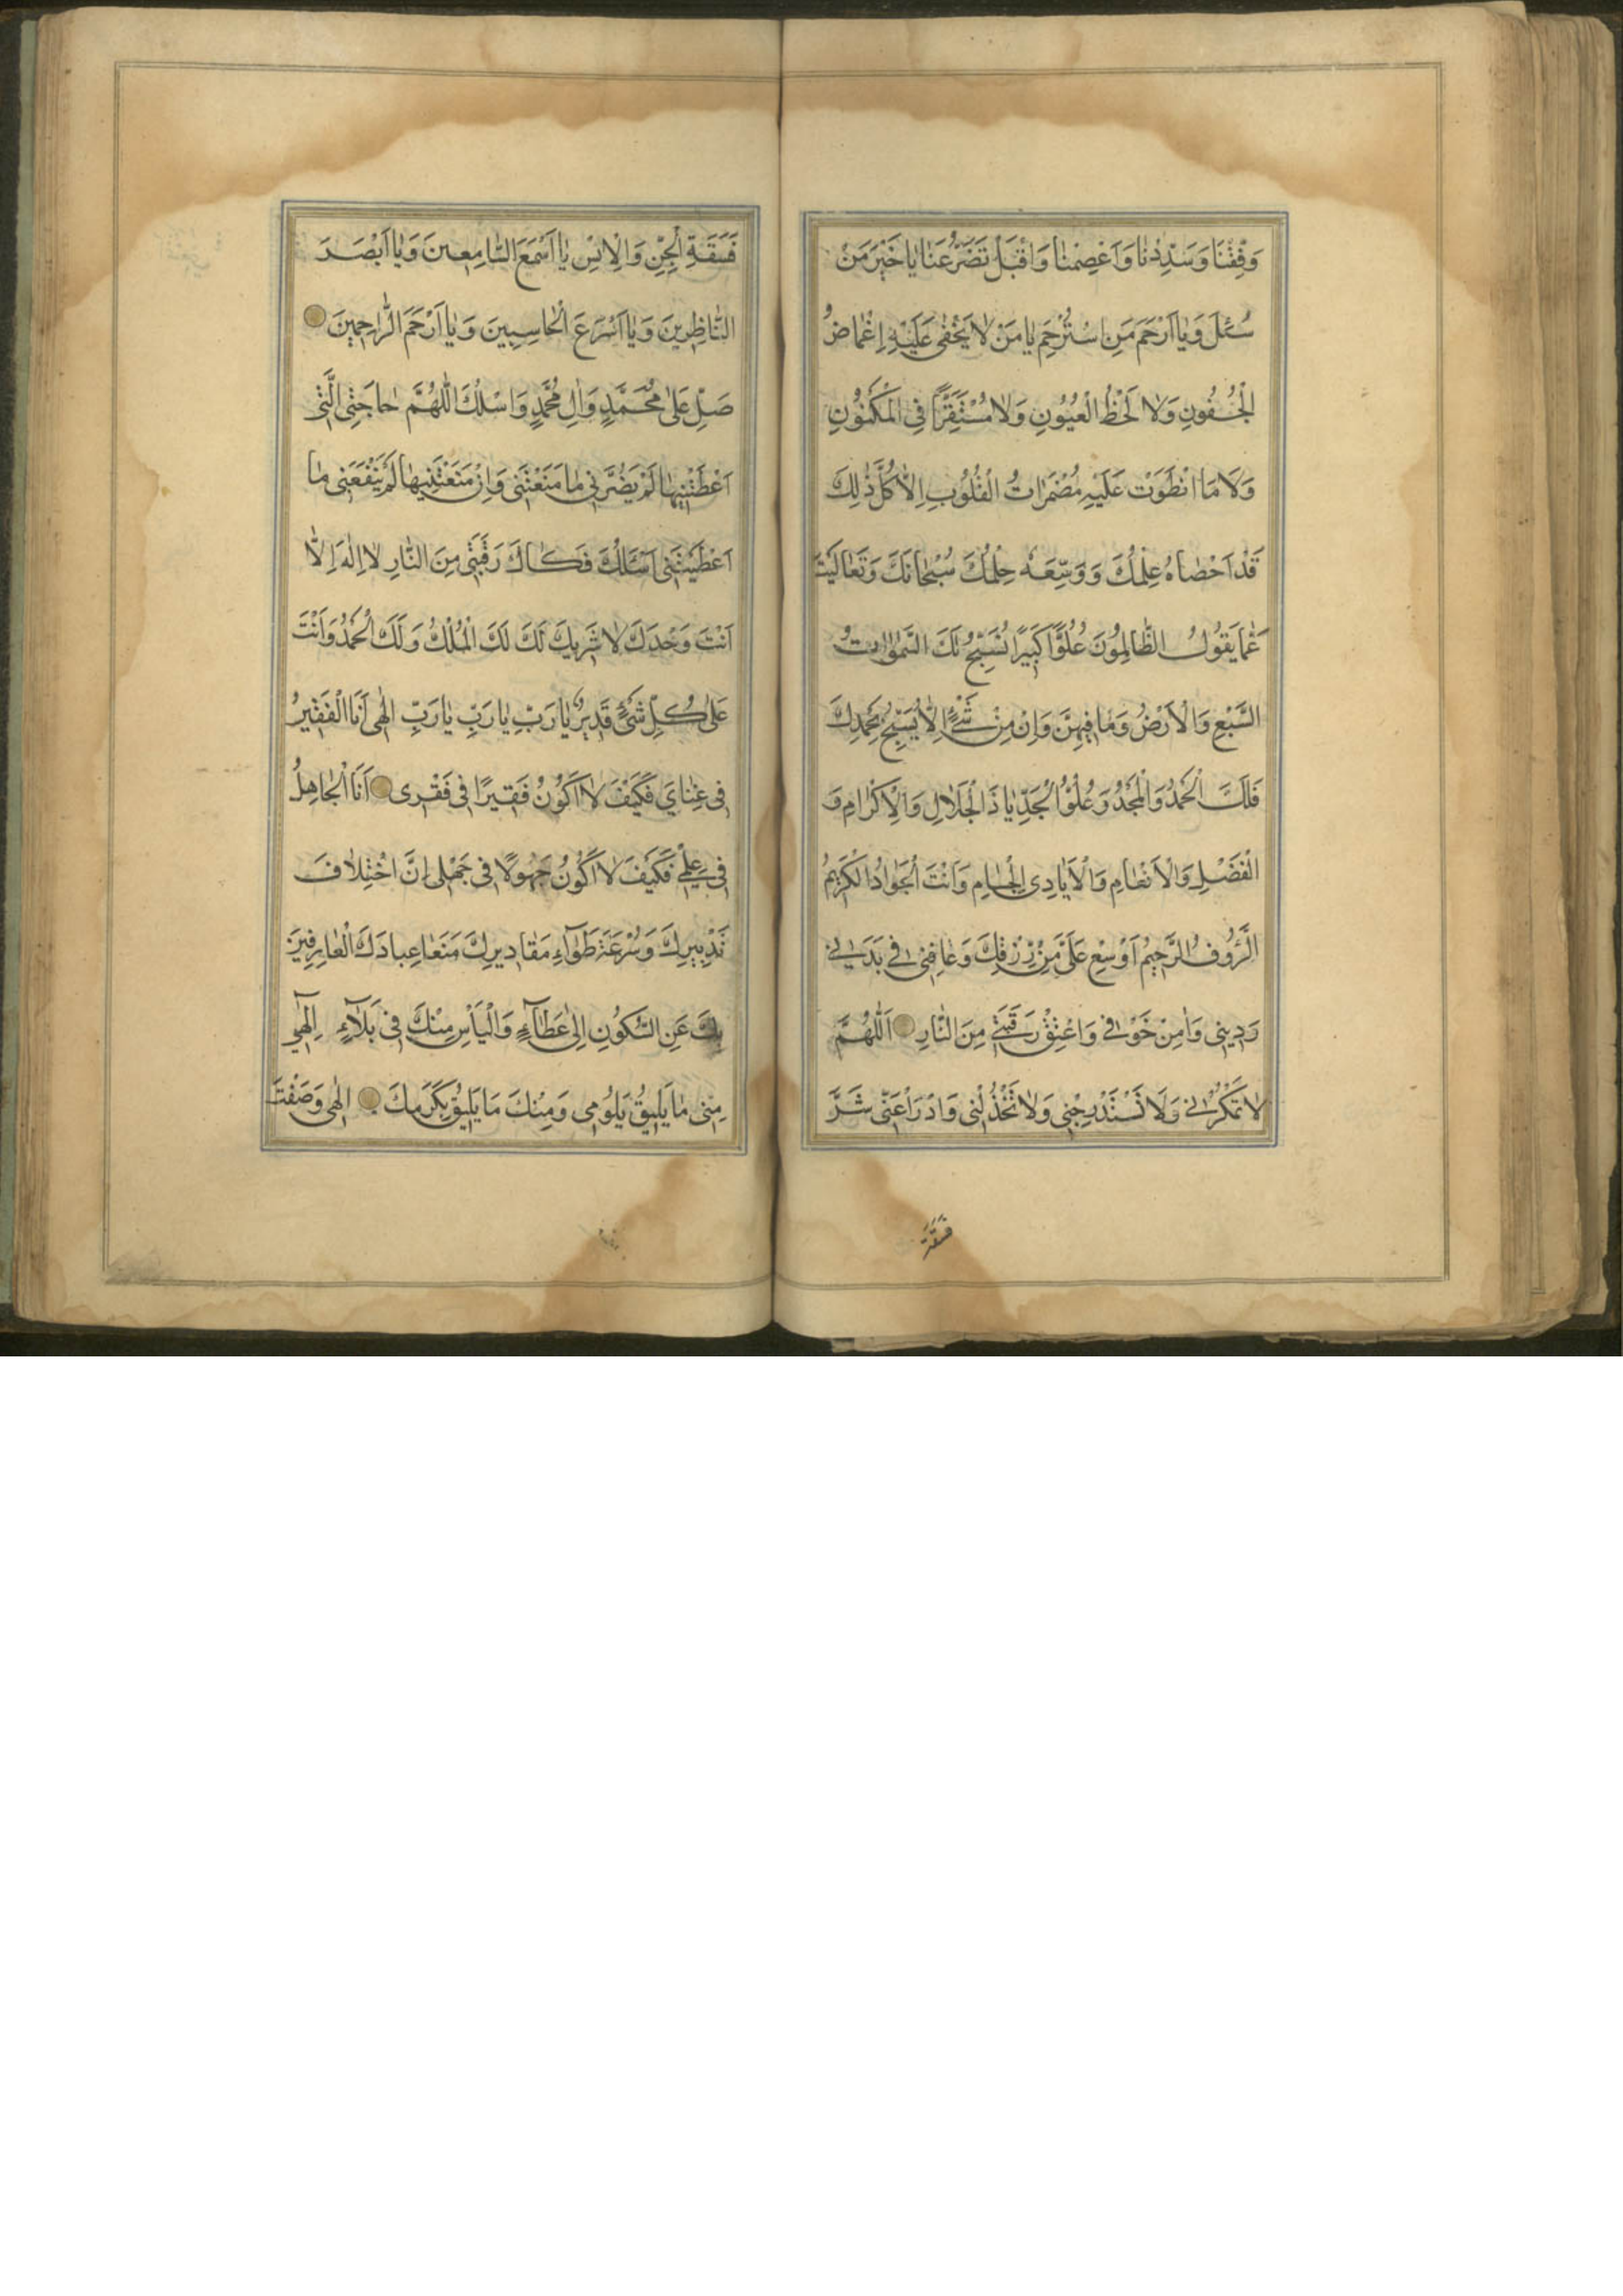 وَفِّقْنَا وَسَدِّدْنَا وَاعْصِمْنَا وَاقْبَلْ تَضَرُّعَنَا يَا خَيْرَ مَنْ
سُئِلَ وَيَا اَرْحَمَ مَنِ اسْتُرْحِمَ يَا مَنْ لَا يَخْفٰى عَلَيْهِ اِغْمَاضُ
الْجُفُونِ وَلَا لَحْظُ الْعُيُونِ وَلَا مُسْتَقِرًّا فِي الْمَكْنُونِ
وَلَا مَا انْطَوَتْ عَلَيْهِ مُضْمَرَاتُ الْقُلُوبِ اِلَّا كُلَّ ذٰلِكَ
قَدْ اَحْصَاهُ عِلْمُكَ وَوَسِعَهُ حِلْمُكَ سُبْحَانَكَ وَتَعَالَيْتَ
عَمَّا يَقُولُ الظَّالِمُونَ عُلُوًّا كَبِيرًا تُسَبِّحُ لَكَ السَّمٰوَاتُ
السَّبْعِ وَالْاَرْضُ وَمَا فِيهِنَّ وَاِنْ مِنْ شَيْءٍ اِلَّا يُسَبِّحُ بِحَمْدِكَ
فَلَكَ الْحَمْدُ وَالْمَجْدُ وَعُلُوُّ الْجَدِّ يَا ذَالْجَلَالِ وَالْاِكْرَامِ وَ
الْفَضْلِ وَالْاَنْعَامِ وَالْاَيَادِى الْجِسَامِ وَاَنْتَ الْجَوَادُ الْكَرِيمُ
الرَّؤُوفُ الرَّحِيمُ اَوْسِعْ عَلَىَّ مِنْ رِزْقِكَ وَعَافِنِى فِى بَدَنِى
وَدِينِى وَاٰمِنْ خَوْفِى وَاعْتِقْ رَقَبَتِى مِنَ النَّارِ اَللّٰهُمَّ
لَا تَمْكُرْ بِى وَلَا تَسْتَدْرِجْنِى وَلَا تَخْذُلْنِى وَادْرَأْ عَنِّى شَرَّ
فَسَقَةِ
فَسَقَةِ الْجِنِّ وَالْاِنْسِ يَا اَسْمَعَ السَّامِعِينَ وَيَا اَبْصَرَ
النَّاظِرِينَ وَيَا اَسْرَعَ الْحَاسِبِينَ وَيَا اَرْحَمَ الرَّاحِمِينَ
صَلِّ عَلٰى مُحَمَّدٍ وَاٰلِ مُحَمَّدٍ وَاَسْئَلُكَ اللّٰهُمَّ حَاجَتِى الَّتِى
اَعْطَيْتَنِيهَا لَمْ يَضُرَّنِى مَا مَنَعْتَنِى وَاِنْ مَنَعْتَنِيهَا لَمْ يَنْفَعْنِى مَا
اَعْطَيْتَنِى اَسْئَلُكَ فَكَاكَ رَقَبَتِى مِنَ النَّارِ لَا اِلٰهَ اِلَّا
اَنْتَ وَحْدَكَ لَا شَرِيكَ لَكَ لَكَ الْمُلْكُ وَلَكَ الْحَمْدُ وَاَنْتَ
عَلٰى كُلِّ شَىْءٍ قَدِيرٌ يَا رَبِّ يَا رَبِّ يَا رَبِّ اِلٰهِى اَنَا الْفَقِيرُ
فِى غِنَاىَ فَكَيْفَ لَا اَكُونُ فَقِيرًا فِى فَقْرِى اَنَا الْجَاهِلُ
فِى عِلْمِى فَكَيْفَ لَا اَكُونُ جَهُولًا فِى جَهْلِى اِنَّ اخْتِلَافَ
تَدْبِيرِكَ وَسُرْعَةَ طَوَاءِ مَقَادِيرِكَ مَنَعَا عِبَادَكَ الْعَارِفِينَ
بِكَ عَنِ السُّكُونِ اِلٰى عَطَاءٍ وَالْيَأْسِ مِنْكَ فِى بَلَاءٍ اِلٰهِى
مِنِّى مَا يَلِيقُ بِلُومِى وَمِنْكَ مَا يَلِيقُ بِكَرَمِكَ اِلٰهِى وَصَفْتَ